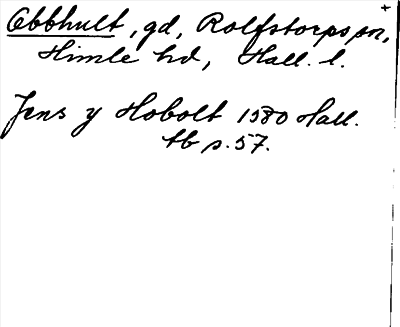 Obbhult, gd, Rolfstorps sn,
Himle hd, Hall. l.
Jens y Hobolt 1580 Hall.
tb s. 57.